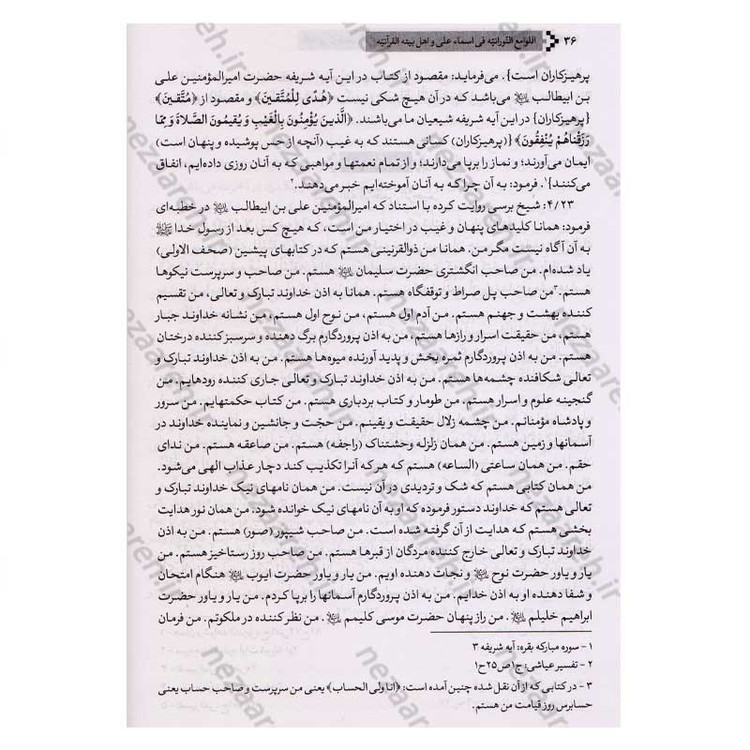 ۳۶ اللوامع النّورانیّه فی اسماء علی و اهل بیته القرآنیّه
پرهیزکاران است}. می‌فرماید: مقصود از کتاب در این آیه شریفه حضرت امیرالمؤمنین علی
بن ابیطالب ﷺ می‌باشد که در آن هیچ شکی نیست ﴿هُدًى لِلْمُتَّقينَ﴾ و مقصود از ﴿مُتَّقينَ﴾
{پرهیزکاران} در این آیه شریفه شیعیان ما می‌باشند. ﴿الَّذينَ يُؤْمِنُونَ بِالْغَيْبِ وَ يُقيمُونَ الصَّلاةَ وَ مِمَّا
رَزَقْناهُمْ يُنْفِقُونَ﴾ {(پرهیزکاران) کسانی هستند که به غیب (آنچه از حس پوشیده و پنهان است)
ایمان می‌آورند؛ و نماز را برپا می‌دارند؛ و از تمام نعمتها و مواهبی که به آنان روزی داده‌ایم، انفاق
می‌کنند}۱. فرمود: به آن چرا که به آنان آموخته‌ایم خبر می‌دهند.۲
۴/۲۳: شیخ برسی روایت کرده با استناد که امیرالمؤمنین علی بن ابیطالب در خطبه‌ای
فرمود: همانا کلیدهای پنهان و غیب در اختیار من است، که هیچ کس بعد از رسول خدا ﷺ
به آن آگاه نیست مگر من. همانا من ذوالقرنینی هستم که در کتابهای پیشین (صحف الاولی)
یاد شده‌ام. من صاحب انگشتری حضرت سلیمان هستم. من صاحب و سرپرست نیکوها
هستم.۳ من صاحب پل صراط و توقفگاه هستم. همانا به اذن خداوند تبارک و تعالی، من تقسیم
کننده بهشت و جهنم هستم. من آدم اول هستم، من نوح اول هستم، من نشانه خداوند جبار
هستم، من حقیقت اسرار و رازها هستم، من به اذن پروردگارم برگ دهنده و سرسبز کننده درختان
هستم. من به اذن پروردگارم ثمره بخش و پدید آورنده میوه‌ها هستم. من به اذن خداوند تبارک و
تعالی شکافنده چشمه‌ها هستم. من به اذن خداوند تبارک و تعالی جاری کننده رودهایم. من
گنجینه علوم و اسرار هستم. من طومار و کتاب بردباری هستم. من کتاب حکمتهایم. من سرور
و پادشاه مؤمنانم. من چشمه زلال حقیقت و یقینم. من حجّت و جانشین و نماینده خداوند در
آسمانها و زمین هستم. من همان زلزله وحشتناک (راجفه) هستم. من صاعقه هستم. من ندای
حقم. من همان ساعتی (الساعه) هستم که هر که آنرا تکذیب کند دچار عذاب الهی می‌شود.
من همان کتابی هستم که شک و تردیدی در آن نیست. من همان نامهای نیک خداوند تبارک و
تعالی هستم که خداوند دستور فرموده که او به آن نامهای نیک خوانده شود. من همان نور هدایت
بخشی هستم که هدایت از آن گرفته شده است. من صاحب شیپور (صور) هستم. من به اذن
خداوند تبارک و تعالی خارج کننده مردگان از قبرها هستم. من صاحب روز رستاخیز هستم. من
یار و یاور حضرت نوح و نجات دهنده اویم. من یار و یاور حضرت ایوب هنگام امتحان
و شفا دهنده او به اذن خدایم. من به اذن پروردگارم آسمانها را برپا کردم. من یار و یاور حضرت
ابراهیم خلیلم. من راز پنهان حضرت موسی کلیمم. من نظر کننده در ملکوتم. من فرمان
۱ - سوره مبارکه بقره: آیه شریفه ۳
۲ - تفسیر عیاشی: ج۱ص۲۵ح۱
۳ - در کتابی که از آن نقل شده چنین آمده است: ﴿انا ولی الحساب﴾ یعنی من سرپرست و صاحب حساب یعنی
حسابرس روز قیامت من هستم.
nezaareh.ir